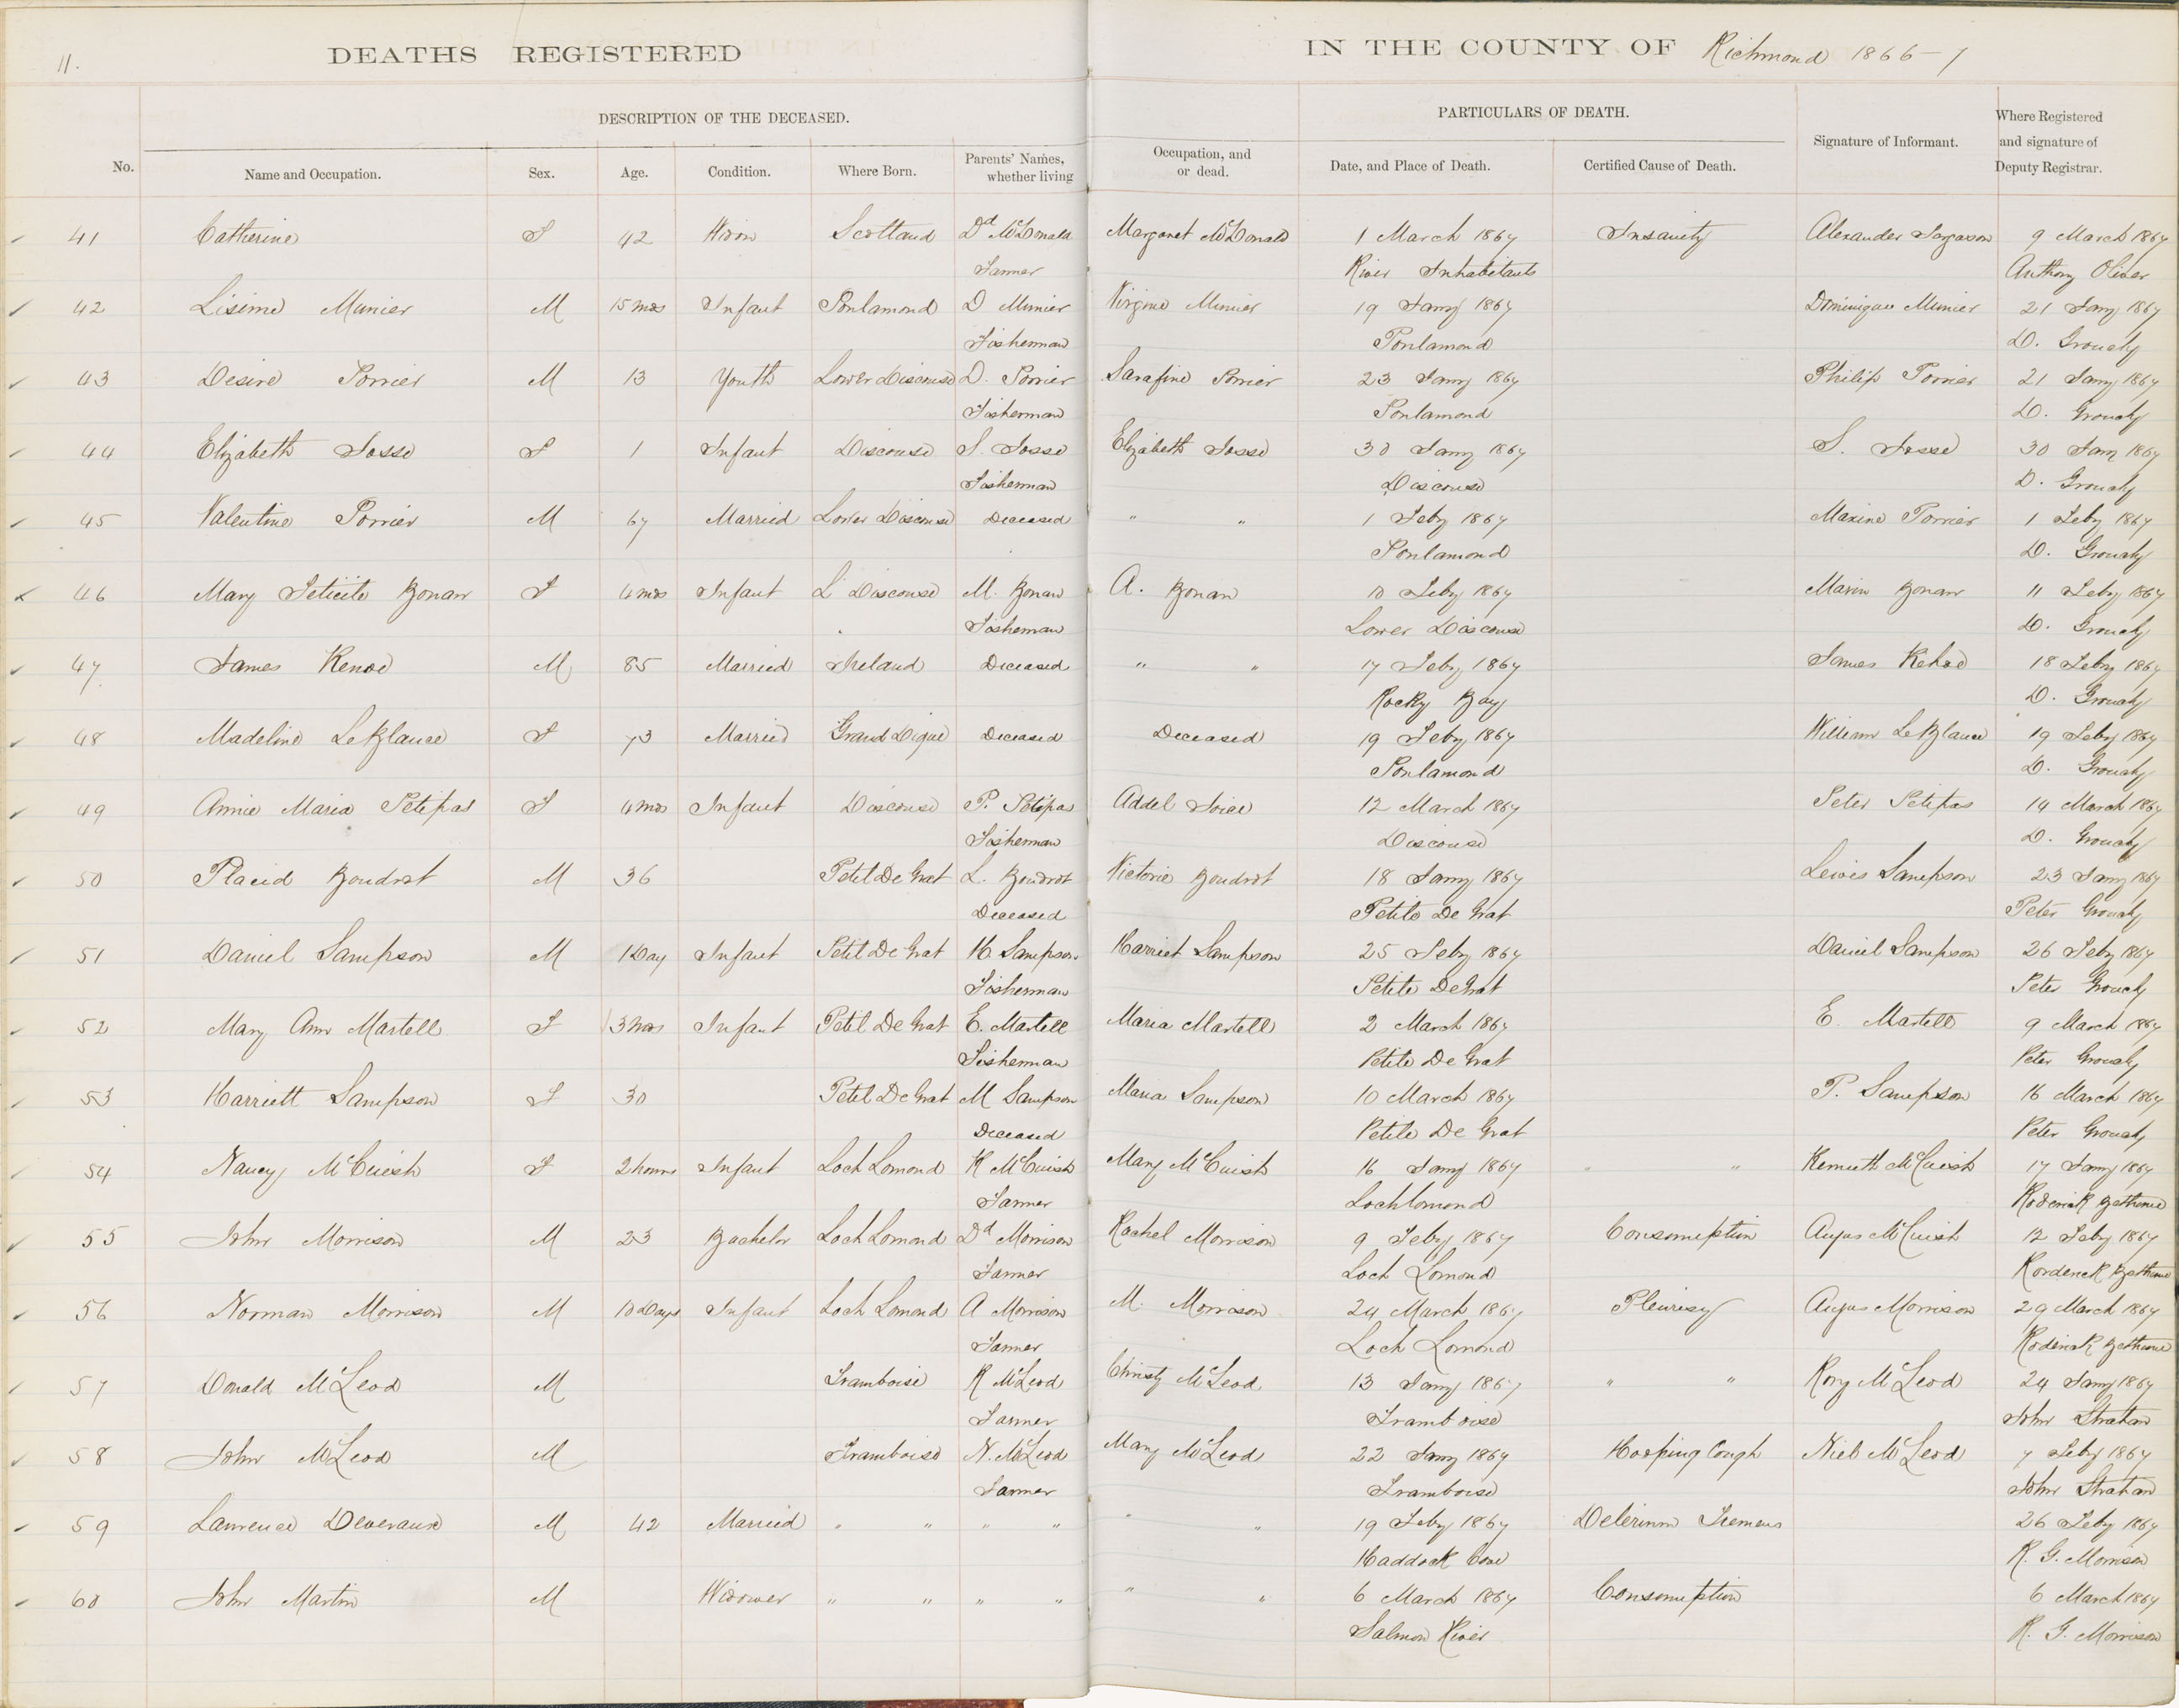 11.
DEATHS REGISTERED IN THE COUNTY OF Richmond 1866-7
DESCRIPTION OF THE DECEASED. PARTICULARS OF DEATH.
No. Name and Occupation. Sex. Age. Condition. Where Born. Parents' Names, whether living Occupation, and or dead. Date, and Place of Death. Certified Cause of Death. Signature of Informant. Where Registered and signature of Deputy Registrar.
41 Catherine F 42 Scotland Dd McDonald Margaret McDonald 1 March 1867 Insanity Alexander 9 March 1867
Farmer River Inhabitants Anthony Oliver
42 Lisime Munier M 15 mos Infant Poulamond D Munier Virginie Munier 19 Jany 1867 Dominique Munier 21 Jany 1867
Fisherman Poulamond D. Grouchy
43 Desire Poirier M 13 Youth Lower Discouse D. Poirier Sarafine Poirier 23 Jany 1867 Philip Poirier 21 Jany 1867
Fisherman Poulamond D. Grouchy
44 Elizabeth Josse F 1 Infant Discouse S. Josse Elizabeth Josse 30 Jany 1867 S. Josse 30 Jan 1867
Fisherman Discouse D. Grouchy
45 Valentine Poirier M 67 Married Lower Discouse Deceased " " 1 Feby 1867 Maxine Poirier 1 Feby 1867
Poulamond D. Grouchy
46 Mary Felicite Bonan F 4 mos Infant L Discouse M. Bonan A. Bonan 10 Feby 1867 Marin Bonan 11 Feby 1867
Fisherman Lower Discouse D. Grouchy
47 James Kehoe M 85 Married Ireland Deceased " " 17 Feby 1867 James Kehoe 18 Feby 1867
Rocky Bay D. Grouchy
48 Madeline LeBlance F 73 Married Grand Digue Deceased Deceased 19 Feby 1867 William LeBlance 19 Feby 1867
Poulamond D. Grouchy
49 Annie Maria Petipas F 4 mos Infant Discouse P. Petipas Addel Joice 12 March 1867 Peter Petipas 14 March 1867
Fisherman Discouse D. Grouchy
50 Placid Boudrot M 36 Petit De Grat L. Boudrot Victorie Boudrot 18 Jany 1867 Lewis Sampson 23 Jany 1867
Deceased Petite De Grat Peter Grouchy
51 Daniel Sampson M 1 Day Infant Petit De Grat H. Sampson Harriet Sampson 25 Feby 1867 Daniel Sampson 26 Feby 1867
Fisherman Petite De Grat Peter Grouchy
52 Mary Ann Martell F 3 mos Infant Petit De Grat E. Martell Maria Martell 2 March 1867 E. Martell 9 March 1867
Fisherman Petite De Grat Peter Grouchy
53 Harriett Sampson F 30 Petit De Grat M Sampson Maria Sampson 10 March 1867 P. Sampson 16 March 1867
Deceased Petite De Grat Peter Grouchy
54 Nancy McCuish F 2 hours Infant Loch Lomond K McCuish Mary McCuish 16 Jany 1867 " " Kenneth McCuish 17 Jany 1867
Farmer Loch Lomond Roderick Bethune
55 John Morrison M 23 Bachelor Loch Lomond Dd Morrison Rachel Morrison 9 Feby 1867 Consumption Angus McCuish 12 Feby 1867
Farmer Loch Lomond Rorderick Bethune
56 Norman Morrison M 10 Days Infant Loch Lomond A Morrison M. Morrison 24 March 1867 Pleurisy Angus Morrison 29 March 1867
Farmer Loch Lomond Roderick Bethune
57 Donald McLeod M Framboise R McLeod Christy McLeod 13 Jany 1867 " " Rory McLeod 24 Jany 1867
Farmer Framboise John Strahan
58 John McLeod M Framboise N. McLeod Mary McLeod 22 Jany 1867 Hooping Cough Niel McLeod 7 Feby 1867
Farmer Framboise John Strahan
59 Laurence Deveraux M 42 Married " " " " " " 19 Feby 1867 Delerium Tremens 26 Feby 1867
Haddock Cove R. G. Morrison
60 John Martin M Widower " " " " " " 6 March 1867 Consumption 6 March 1867
Salmon River R. G. Morrison